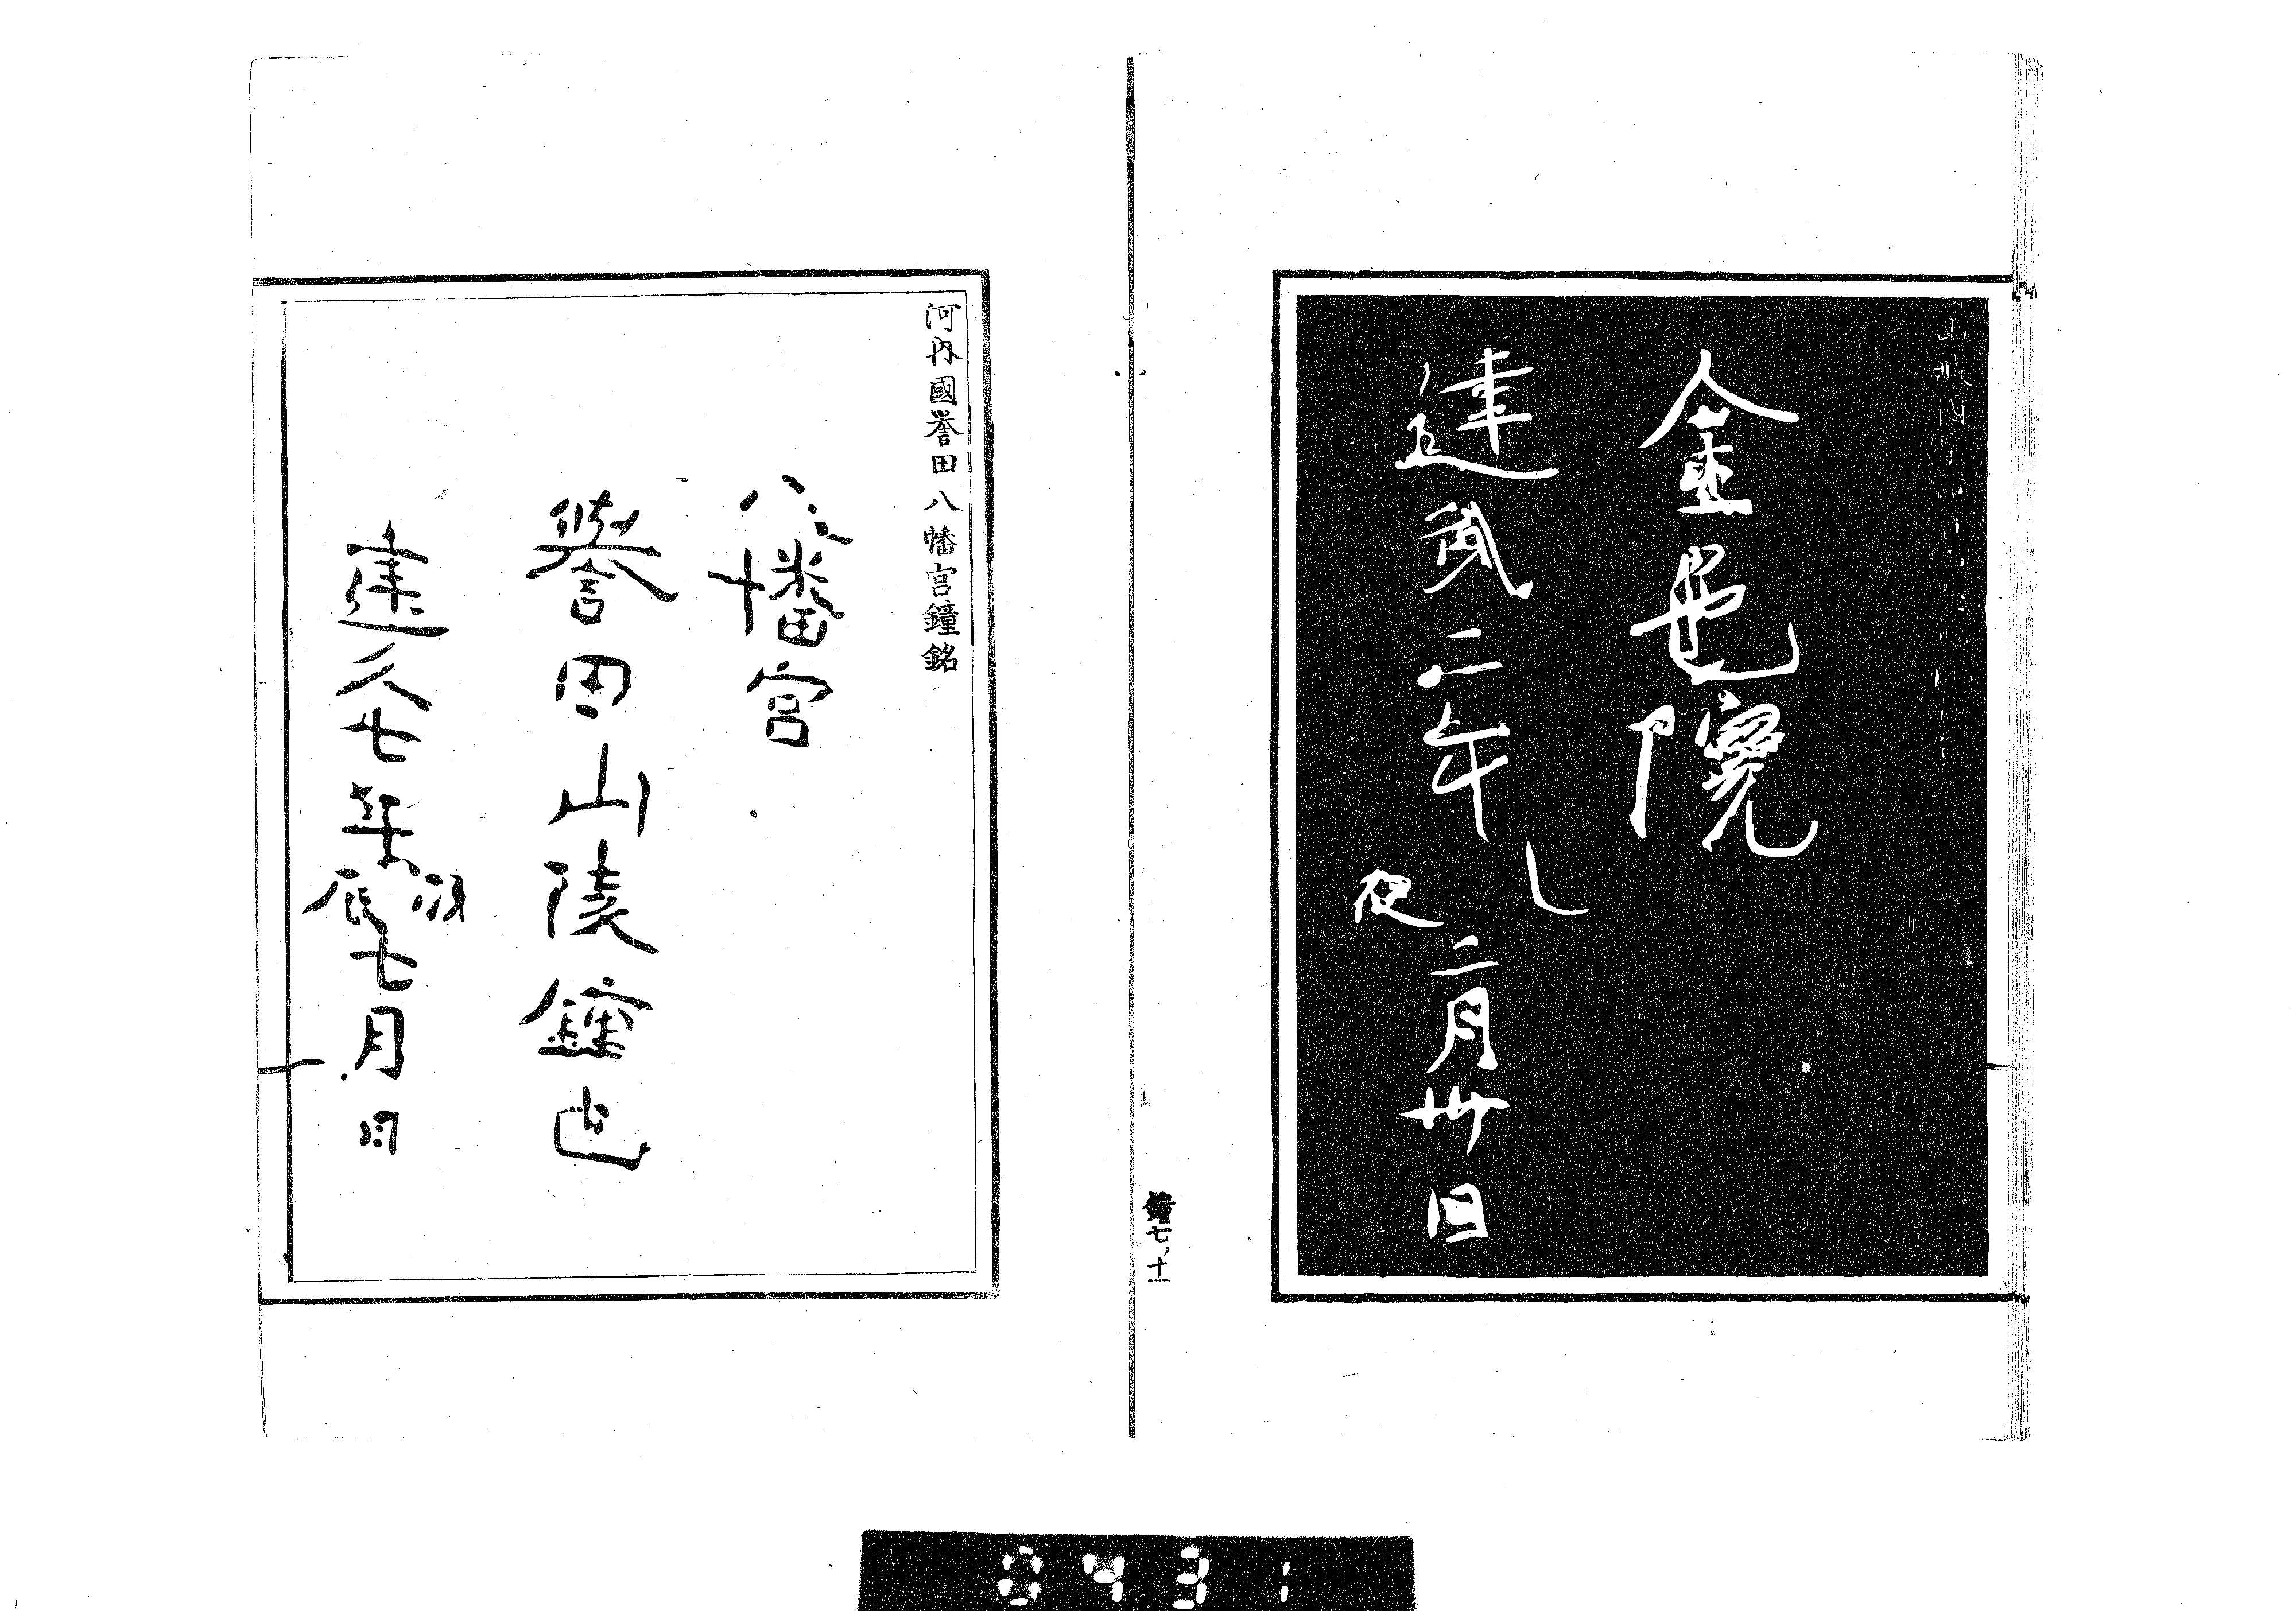 金色院
建武二年乙亥二月卅日
鐘七ノ十一
河内國誉田八幡宮鐘銘
八幡宮
譽田山陵鐘也
建久七年丙辰七月日
0431